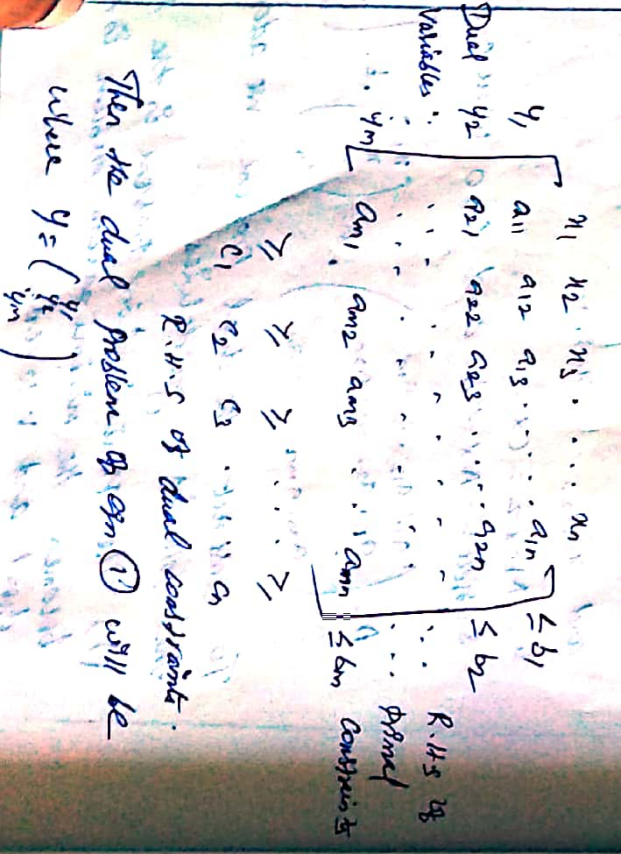 x1 x2 x3 . . . . xn
y1 a11 a12 a13 . . . . . a1n ≤ b1
Dual y2 a21 a22 a23 . . . . a2n ≤ b2
variables : . . . . . . . . R.H.S of
. . . . . . . . . . primal
ym am1 am2 am3 . . . amn ≤ bm constraints
≥ ≥ ≥ . . . . ≥
c1 c2 c3 . . . . cn
R.H.S of dual constraints.
Then the dual problem of eqn (1) will be
where y = (y1 y2 ym)